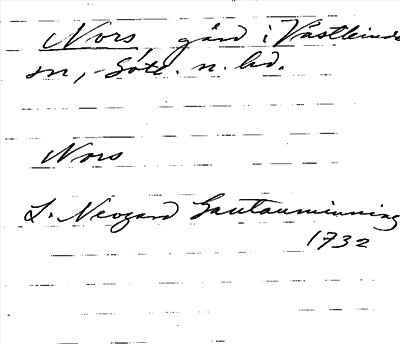 Nors, gård i Västlands
sn, Söte. n. hd.
Nors
L. Neogard Gautauminning
1732